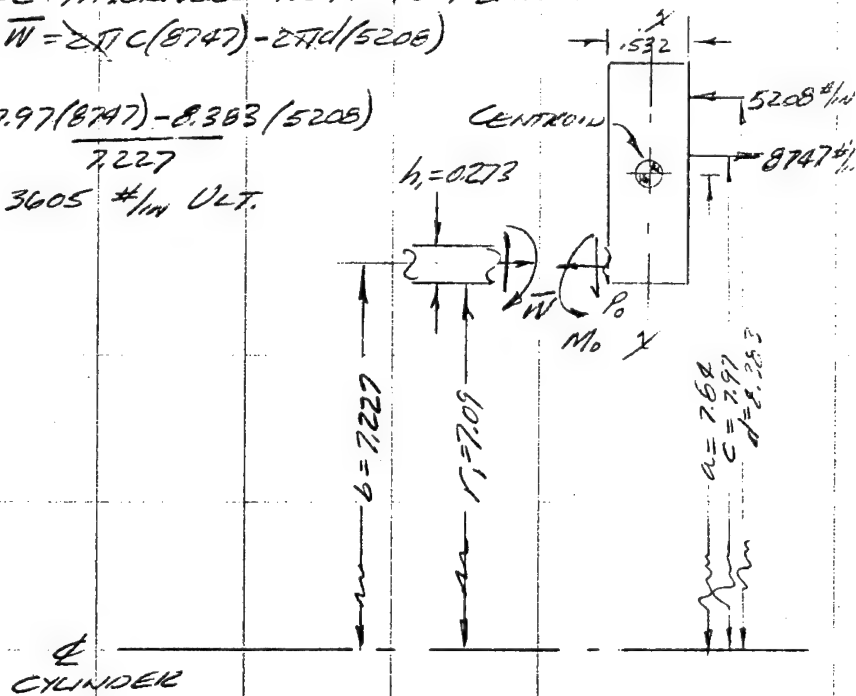 W̅ = 2πc(8747) - 2πd(5208)
7.97(8747) - 8.383(5208)
7.227
3605 #/IN ULT.
X
.532
5208 #/IN
CENTROID
8747 #/
h₁ = 0.273
W̅
P₀
M₀
X
b = 7.227
r₁ = 7.09
a = 7.64
c = 7.97
d = 8.383
℄
CYLINDER